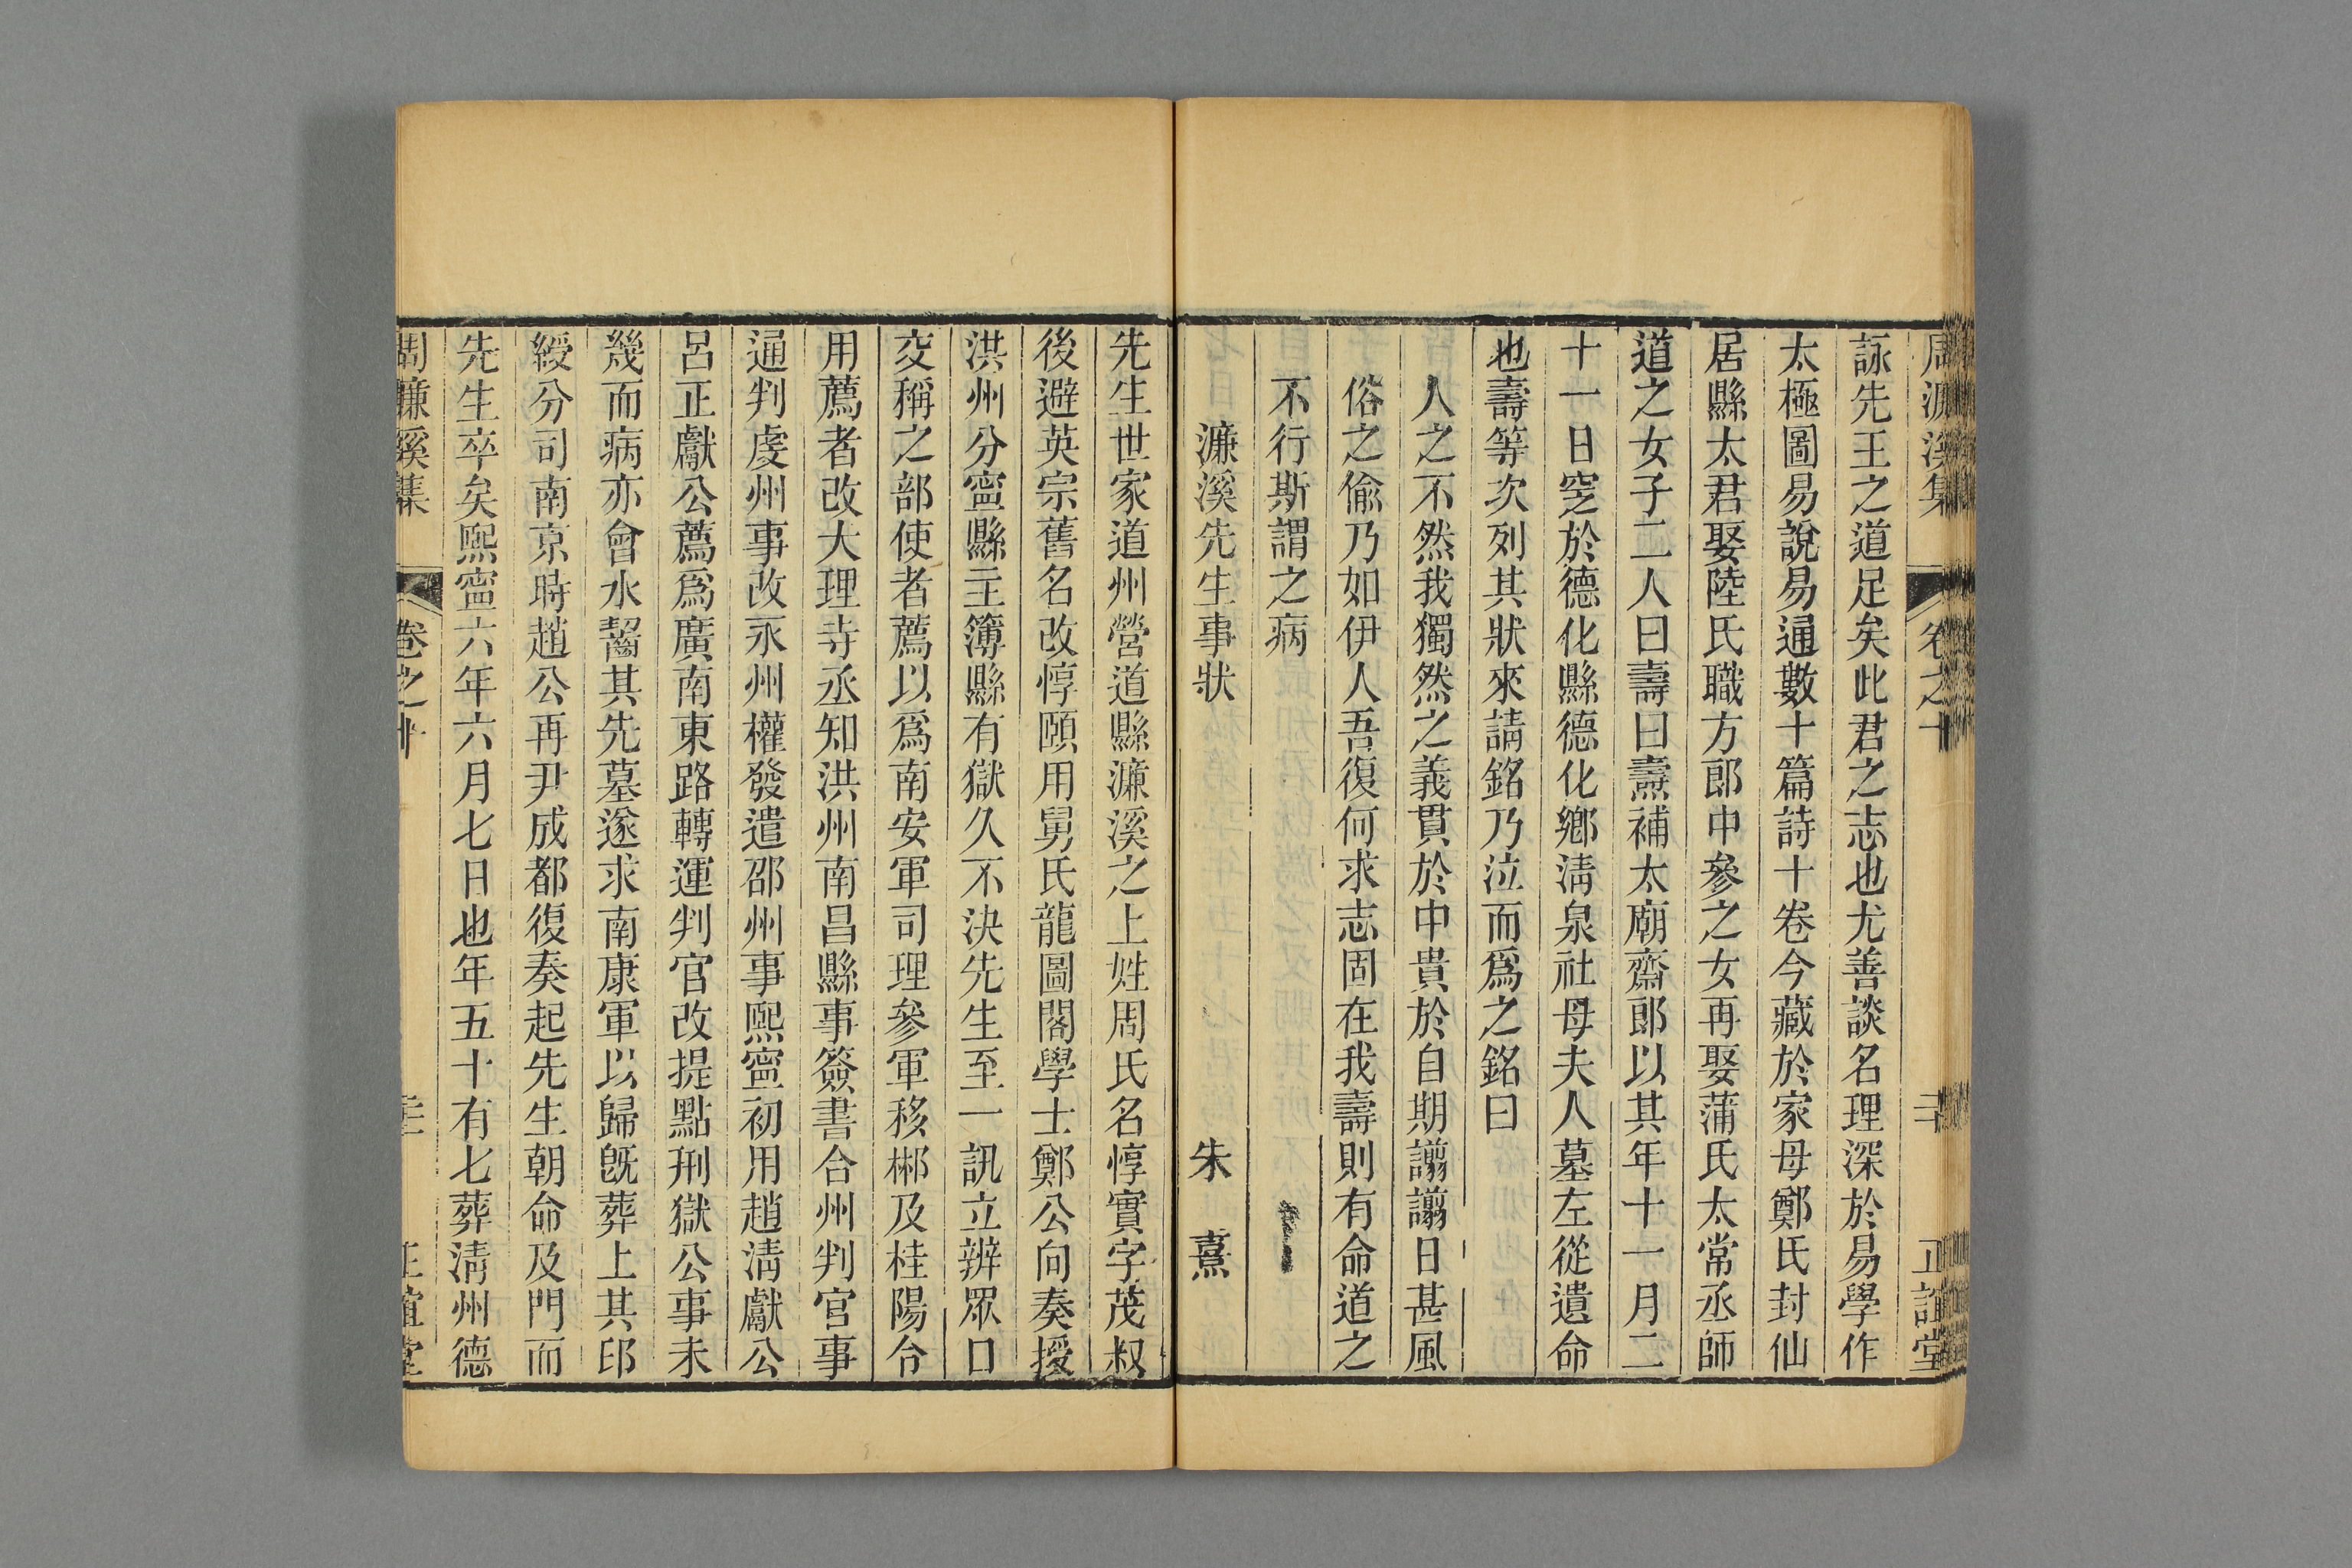 周濂溪集 卷之十 二十 正誼堂
詠先王之道足矣此君之志也尤善談名理深於易學作
太極圖易說易通數十篇詩十卷今藏於家母鄭氏封仙
居縣太君娶陸氏職方郎中參之女再娶蒲氏太常丞師
道之女子二人曰壽曰燾補太廟齋郎以其年十一月二
十一日窆於德化縣德化鄉清泉社母夫人墓左從遺命
也壽等次列其狀來請銘乃泣而爲之銘曰
人之不然我獨然之義貫於中貴於自期譾譾日甚風
俗之偷乃如伊人吾復何求志固在我壽則有命道之
不行斯謂之病
濂溪先生事狀 朱熹
先生世家道州營道縣濂溪之上姓周氏名惇實字茂叔
後避英宗舊名改惇頤用舅氏龍圖閣學士鄭公向奏授
洪州分寧縣主簿縣有獄久不決先生至一訊立辨眾口
交稱之部使者薦以爲南安軍司理參軍移郴及桂陽令
用薦者改大理寺丞知洪州南昌縣事簽書合州判官事
通判虔州事改永州權發遣邵州事熙寧初用趙清獻公
呂正獻公薦爲廣南東路轉運判官改提點刑獄公事未
幾而病亦會水齧其先墓遂求南康軍以歸旣葬上其印
綬分司南京時趙公再尹成都復奏起先生朝命及門而
先生卒矣熙寧六年六月七日也年五十有七葬清州德
周濂溪集 卷之十 正誼堂